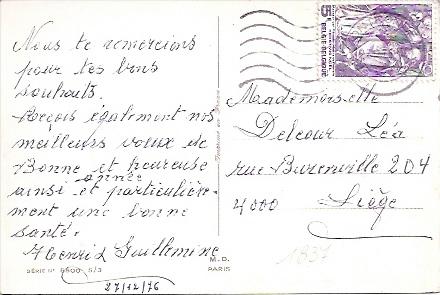 Nous te remercions
pour tes bons
souhaits.
Reçois également nos
meilleurs voeux de
Bonne et heureuse
année
ainsi et particulière-
ment une bonne
santé.
Henri & Guillemine
SÉRIE N° 6500 S/3
27/12/76
M.D.
PARIS
BELGIE-BELGIQUE
Mademoiselle
Delcour Léa
rue Burenville 204
4000 Liège
1837